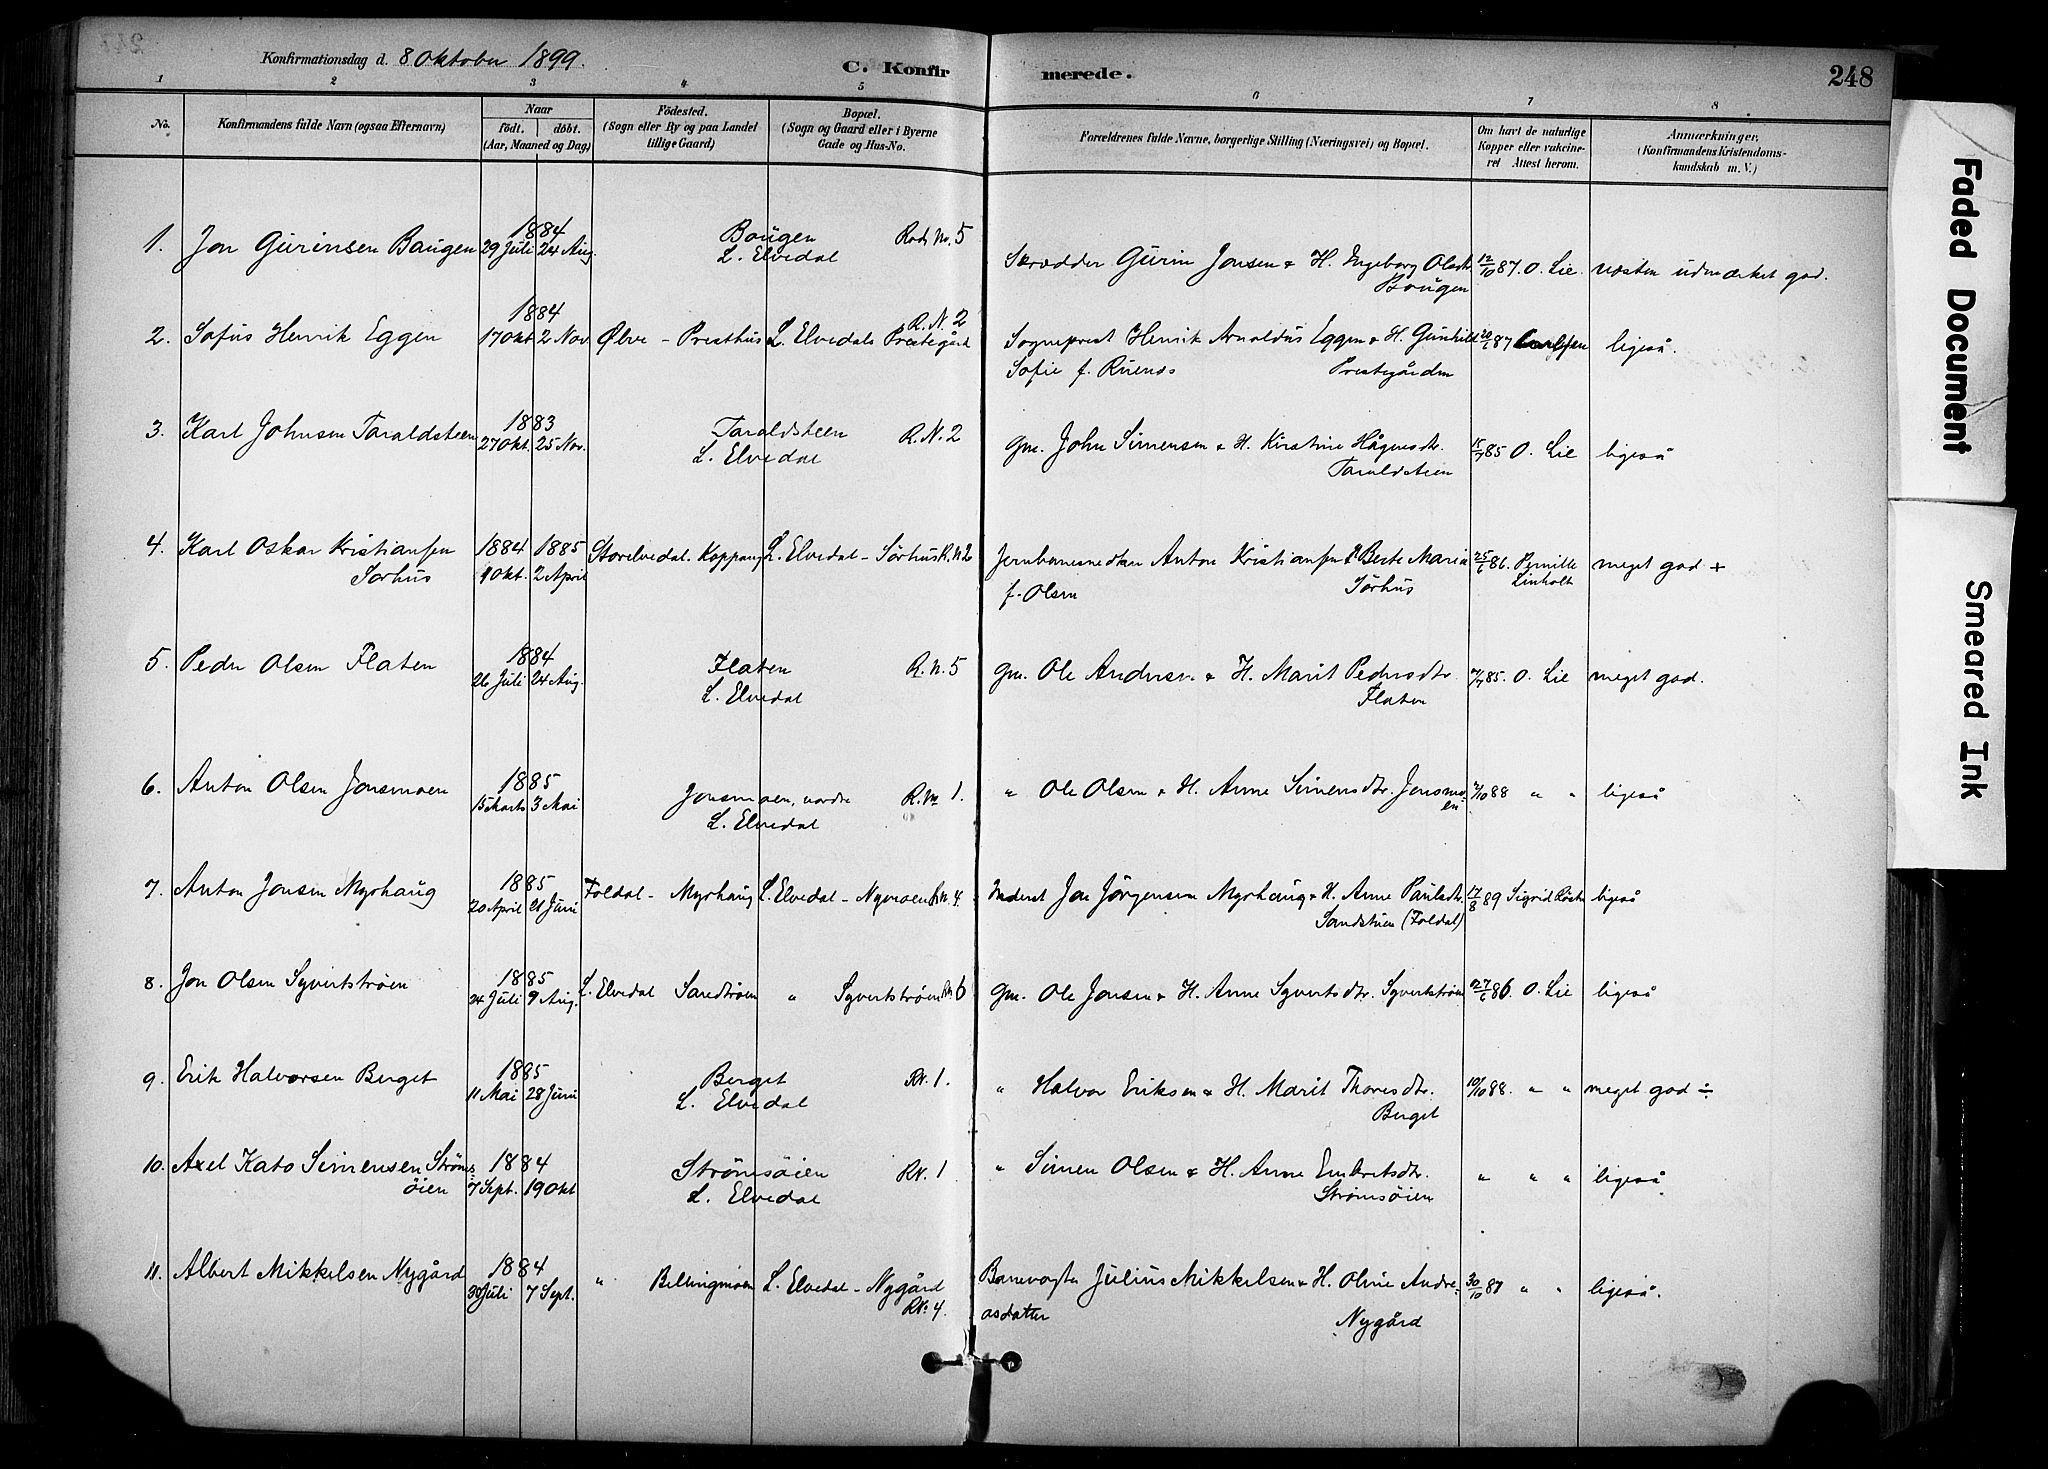 Konfirmationsdag d. 8 Oktober 1899.
C. Konfirmerede.
248
1 2 3 4 5 6 7 8
No.
Konfirmandens fulde Navn (ogsaa Efternavn)
Naar
födt. döbt.
(Aar, Maaned og Dag)
Födested.
(Sogn eller By og paa Landet
tillige Gaard)
Bopæl.
(Sogn og Gaard eller i Byerne
Gade og Hus-No.
Forældrenes fulde Navne, borgerlige Stilling (Næringsvei) og Bopæl.
Om havt de naturlige
Kopper eller vakcine-
ret Attest herom.
Anmærkninger,
(Konfirmandens Kristendoms-
kundskab m. V.)
1. Jon Gurinsen Baugen 1884 29 Juli 24 Aug. Baugen L. Elvedal Rode No. 5 Skrædder Gurin Jonsen & H. Ingeborg Olsdtr. Baugen 12/10 87. O. Lie. næsten udmærket god.
2. Sofus Henrik Eggen 1884 17 Okt 2 Nov. Ølve - Presthus L. Elvedals Prestegård R.N. 2 Sogneprest Henrik Arnoldus Eggen & H. Gunhild
Sofie f. Ruenes Prestegården 87 ligeså.
3. Karl Johnsen Taraldsteen 1883 27 Okt. 25 Nov. Taraldsteen L. Elvedal R.N. 2 Gm. John Simensen & H. Kirstine Hågensdtr. Taraldsteen 15/7 85 O. Lie ligeså
4. Karl Oskar Kristiansen Sørhus 1884 9 Okt. 1885 2 April Storelvedal. Koppang L. Elvedal - Sørhus R.N. 2 Jernbanesnedker Anton Kristiansen & Berte Marie
f. Olsen Sørhus 25/6 86. Pernille Linholt meget god +
5. Peder Olsen Flaten 1884 26 Juli 24 Aug. Flaten L. Elvedal R.N. 5 Gm. Ole Andersen & H. Marit Pedersdtr. Flaten 7/7 85. O. Lie meget god.
6. Anton Olsen Jonsmoen 1885 15 Marts 3 Mai Jonsmoen, nordre L. Elvedal R.No 1. " Ole Olsen & H. Anne Simensdtr. Jonsmoen 7/10 88 " " ligeså
7. Anton Jonsen Myrhaug 1885 20 April 21 Juni Foldal - Myrhaug L. Elvedal - Nymoen R.N. 4. Inderst Jon Jørgensen Myrhaug & H. Anne Paulsdtr. Sandstuen (Foldal) 17/8 89 Sigrid ligeså
8. Jon Olsen Syvertstrøm 1885 24 Juli 9 Aug. L. Elvedal Sandtrøen " Syvertstrøm RN. 6 Gm. Ole Jonsen & H. Anne Syvertsdtr. Syvertstrøm 27/6 86. O. Lie ligeså
9. Erik Halvorsen Berget 1885 11 Mai 28 Juni Berget L. Elvedal RN. 1. " Halvor Eriksen & H. Marit Thoresdtr. Berget 10/10 88. " " meget god ÷
10. Axel Kato Simensen Strømsøien 1884 7 Sept. 19 Okt Strømsøien L. Elvedal RN. 1 " Simen Olsen & H. Anne Embretsdtr. Strømsøien " " " ligeså
11. Albert Mikkelsen Nygård 1884 30 Juli 7 Sept. " Bellingmoen L. Elvedal - Nygård RN. 4. Banevogter Julius Mikkelsen & H. Oline Andre-
asdatter Nygård 30/10 87 " " ligeså.
Faded Document
Smeared Ink